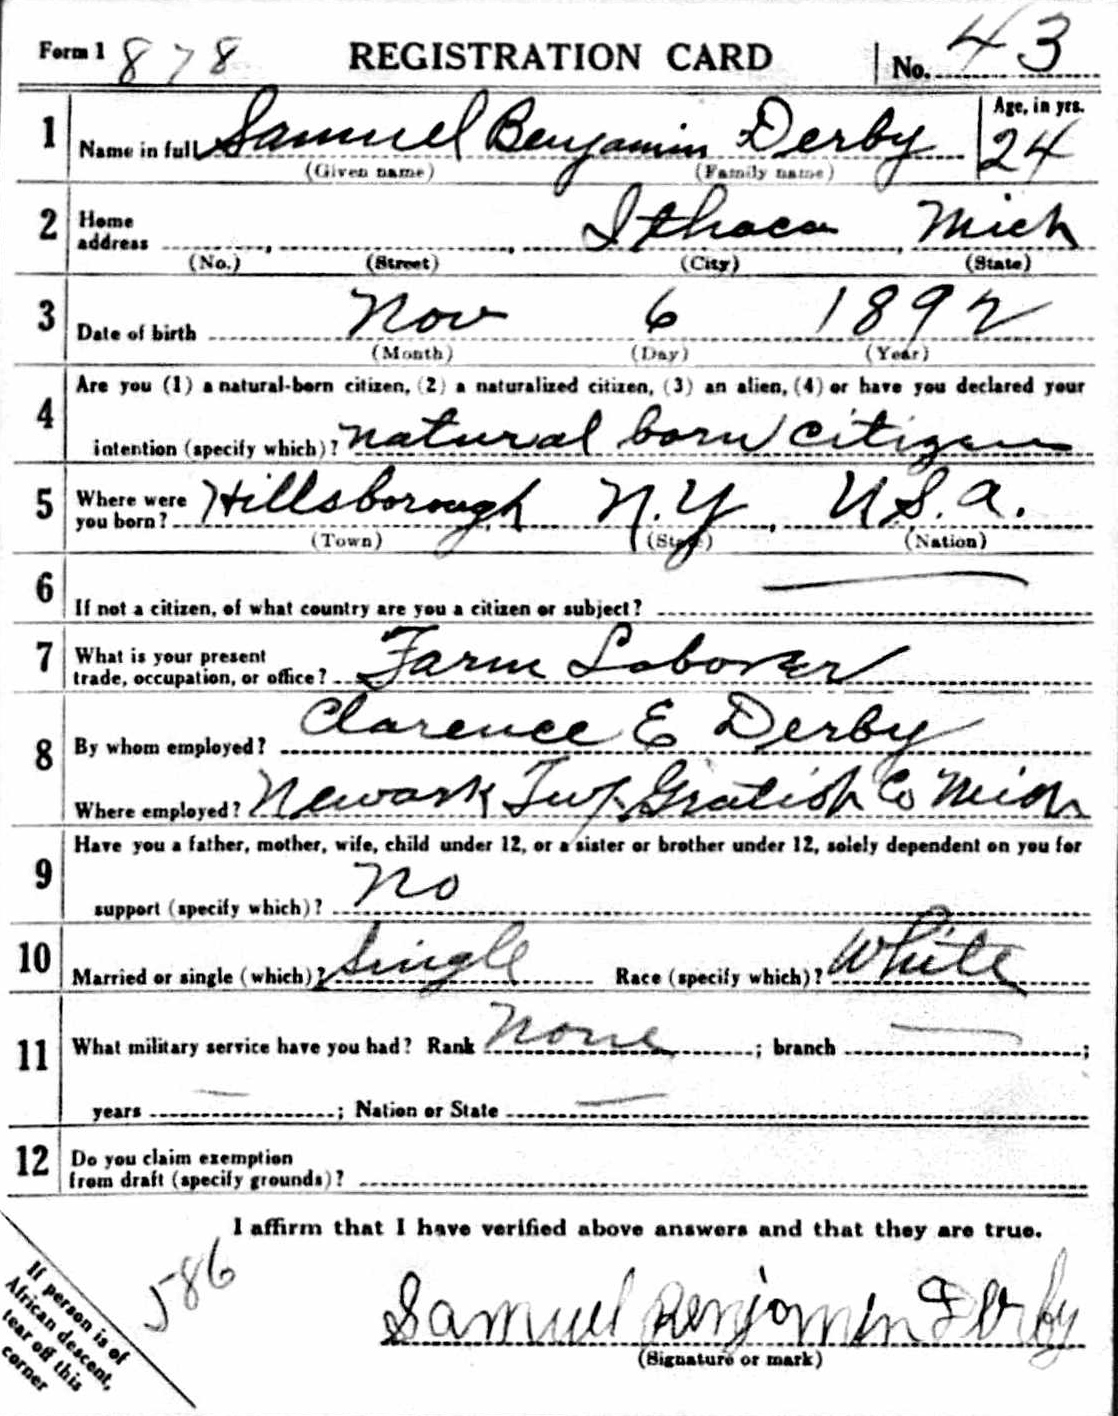 Form 1 878 REGISTRATION CARD No. 43
1 Name in full Samuel Benjamin Derby Age, in yrs. 24
(Given name) (Family name)
2 Home address Ithaca, Mich
(No.) (Street) (City) (State)
3 Date of birth Nov 6 1892
(Month) (Day) (Year)
4 Are you (1) a natural-born citizen, (2) a naturalized citizen, (3) an alien, (4) or have you declared your
intention (specify which)? natural born citizen
5 Where were you born? Hillsborough N.Y, U.S.A.
(Town) (State) (Nation)
6 If not a citizen, of what country are you a citizen or subject? —
7 What is your present trade, occupation, or office? Farm Laborer
8 By whom employed? Clarence E Derby
Where employed? Newark Twp. Gratiot Co Mich
9 Have you a father, mother, wife, child under 12, or a sister or brother under 12, solely dependent on you for
support (specify which)? No
10 Married or single (which)? Single Race (specify which)? White
11 What military service have you had? Rank None ; branch — ;
years — ; Nation or State —
12 Do you claim exemption
from draft (specify grounds)?
I affirm that I have verified above answers and that they are true.
586
Samuel Benjamin Derby
(Signature or mark)
If person is of
African descent,
tear off this
corner